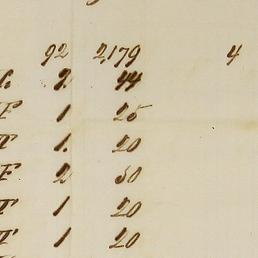 92 2,179 4
2. 44
1 25
1. 20
2 50
1 20
1 20